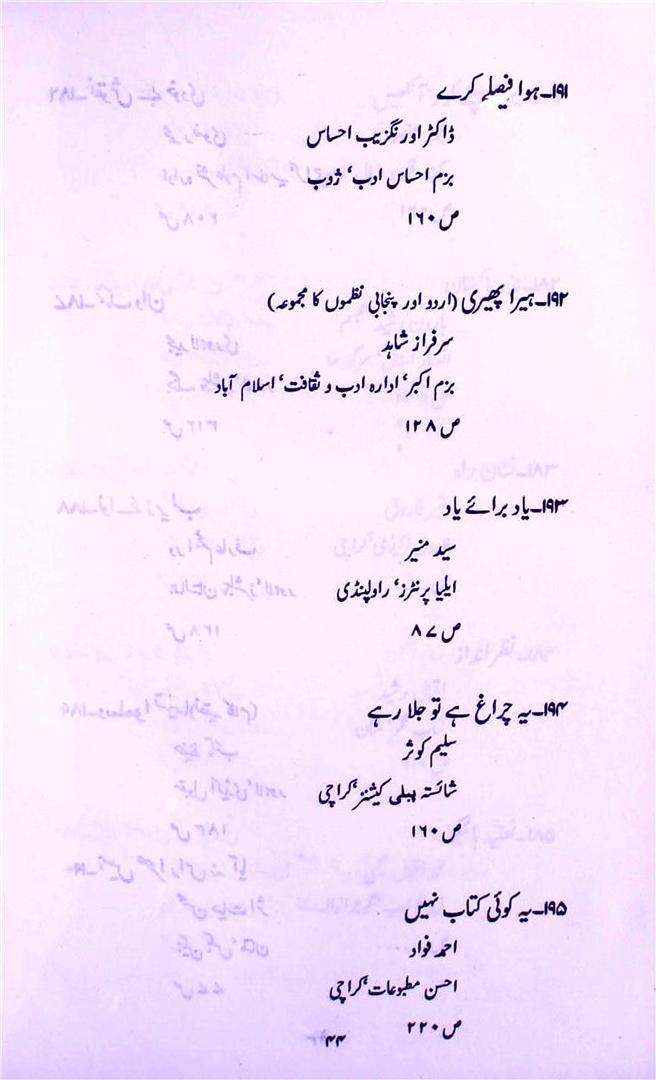 ۱۹۱۔ہوا فیصلے کرے
ڈاکٹر اورنگزیب احساس
بزم احساس ادب‘ ژوب
ص ۱۶۰
۱۹۲۔ہیرا پھیری (اردو اور پنجابی نظموں کا مجموعہ)
سرفراز شاہد
بزم اکبر‘ ادارہ ادب و ثقافت‘ اسلام آباد
ص ۱۲۸
۱۹۳۔یاد برائے یاد
سید منیر
ایلیا پرنٹرز‘ راولپنڈی
ص ۸۷
۱۹۴۔یہ چراغ ہے تو جلا رہے
سلیم کوثر
شائستہ پبلی کیشنز‘ کراچی
ص ۱۶۰
۱۹۵۔یہ کوئی کتاب نہیں
احمد فواد
احسن مطبوعات‘ کراچی
ص ۲۲۰
۴۴